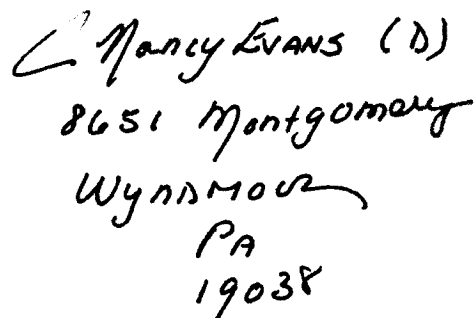 Nancy Evans (D)
8651 Montgomery
Wyndmoor
PA
19038